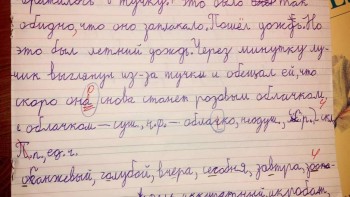 тучку. Это было так
обидно, что оно заплакало. Пошёл дождь. Но
это был летний дождь. Через минутку лу-
чик выглянул из-за тучки и обещал ей, что
скоро она снова станет розовым облачком.
с облачком – сущ., н.ф. – облачко, неодуш.,
П.п., ед.ч.
голубой, вчера, сегодня, завтра,